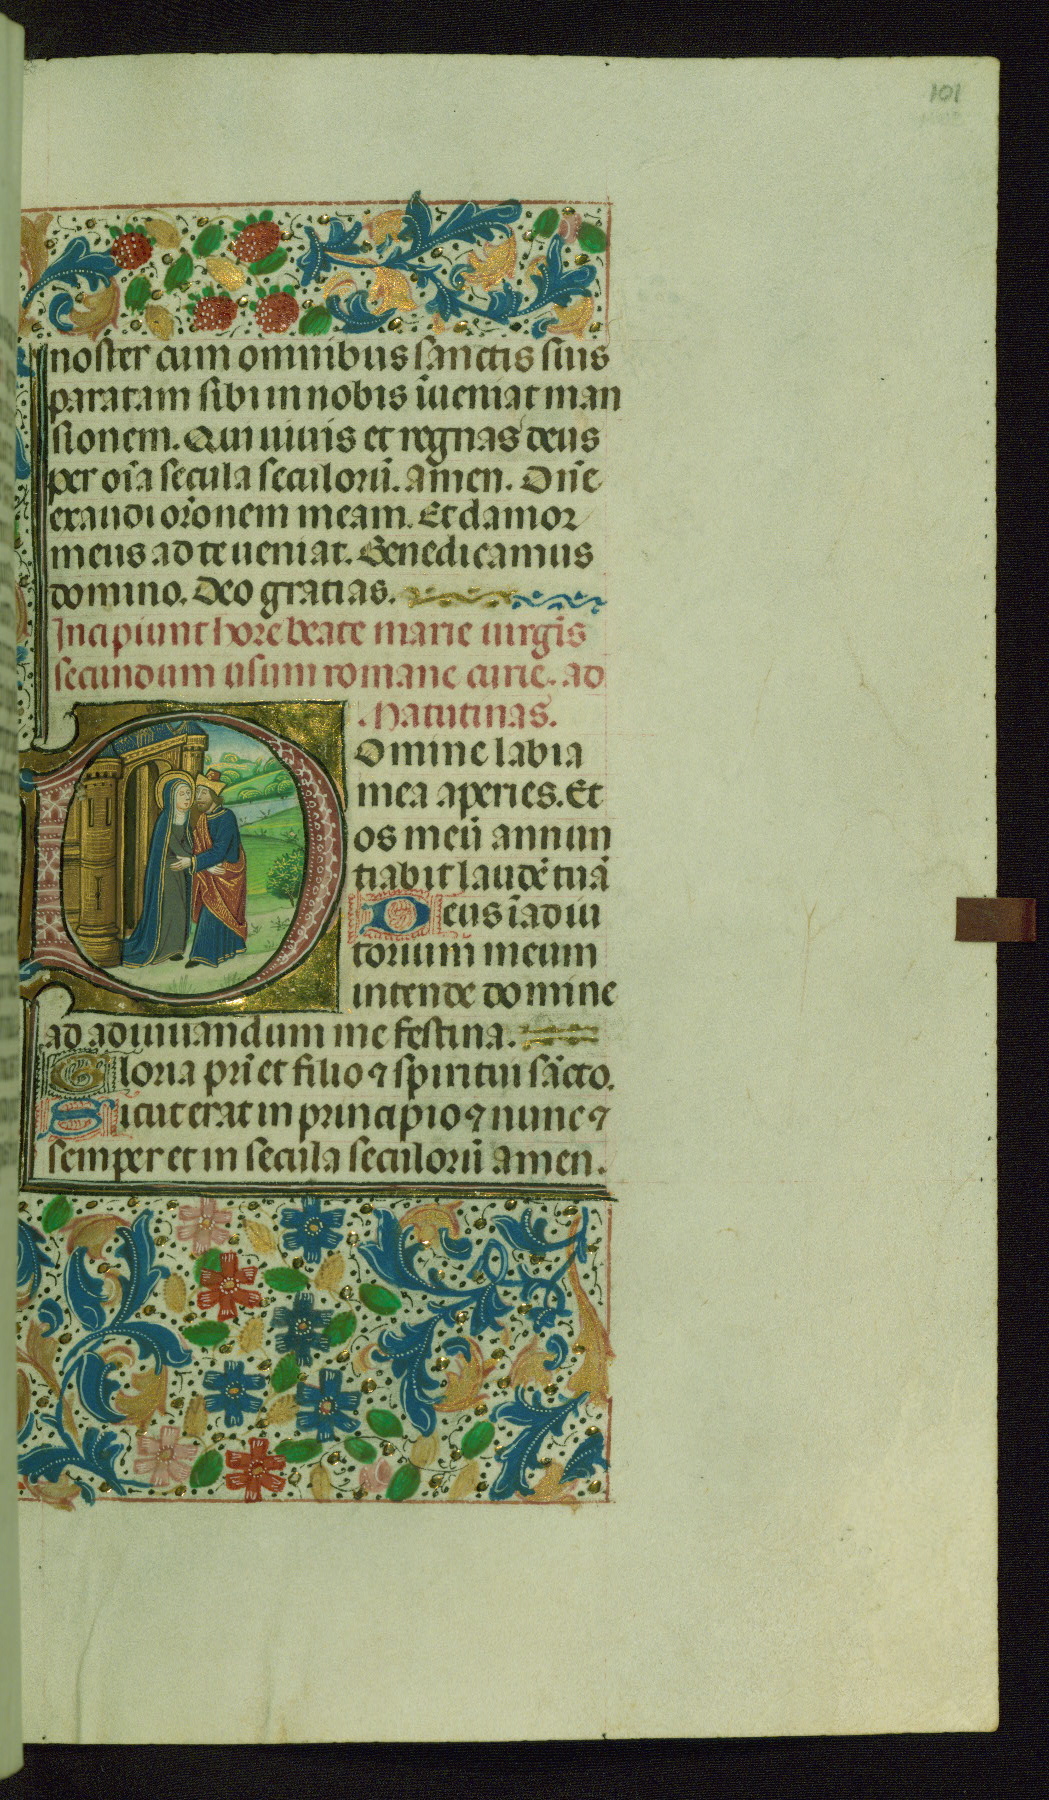 101
noster cum omnibus sanctis suis
paratam sibi in nobis īueniat man
sionem. Qui uiuis et regnas deus
per oīa secula seculorū. amen. Dn̄e
exaudi or̄onem meam. Et clamor
meus ad te ueniat. Benedicamus
domino. Deo gratias.
Incipiunt hore beate marie uirgīs
secundum usum romane curie. ad
Matutinas.
Domine labia
mea aperies. Et
os meū annun
tiabit laudē tuā
Deus ī adiu
torium meum
intende domine
ad adiuuandum me festina.
Gloria pr̄i et filio ⁊ spiritui sācto.
Sicut erat in principio ⁊ nunc ⁊
semper et in secula seculorū amen.